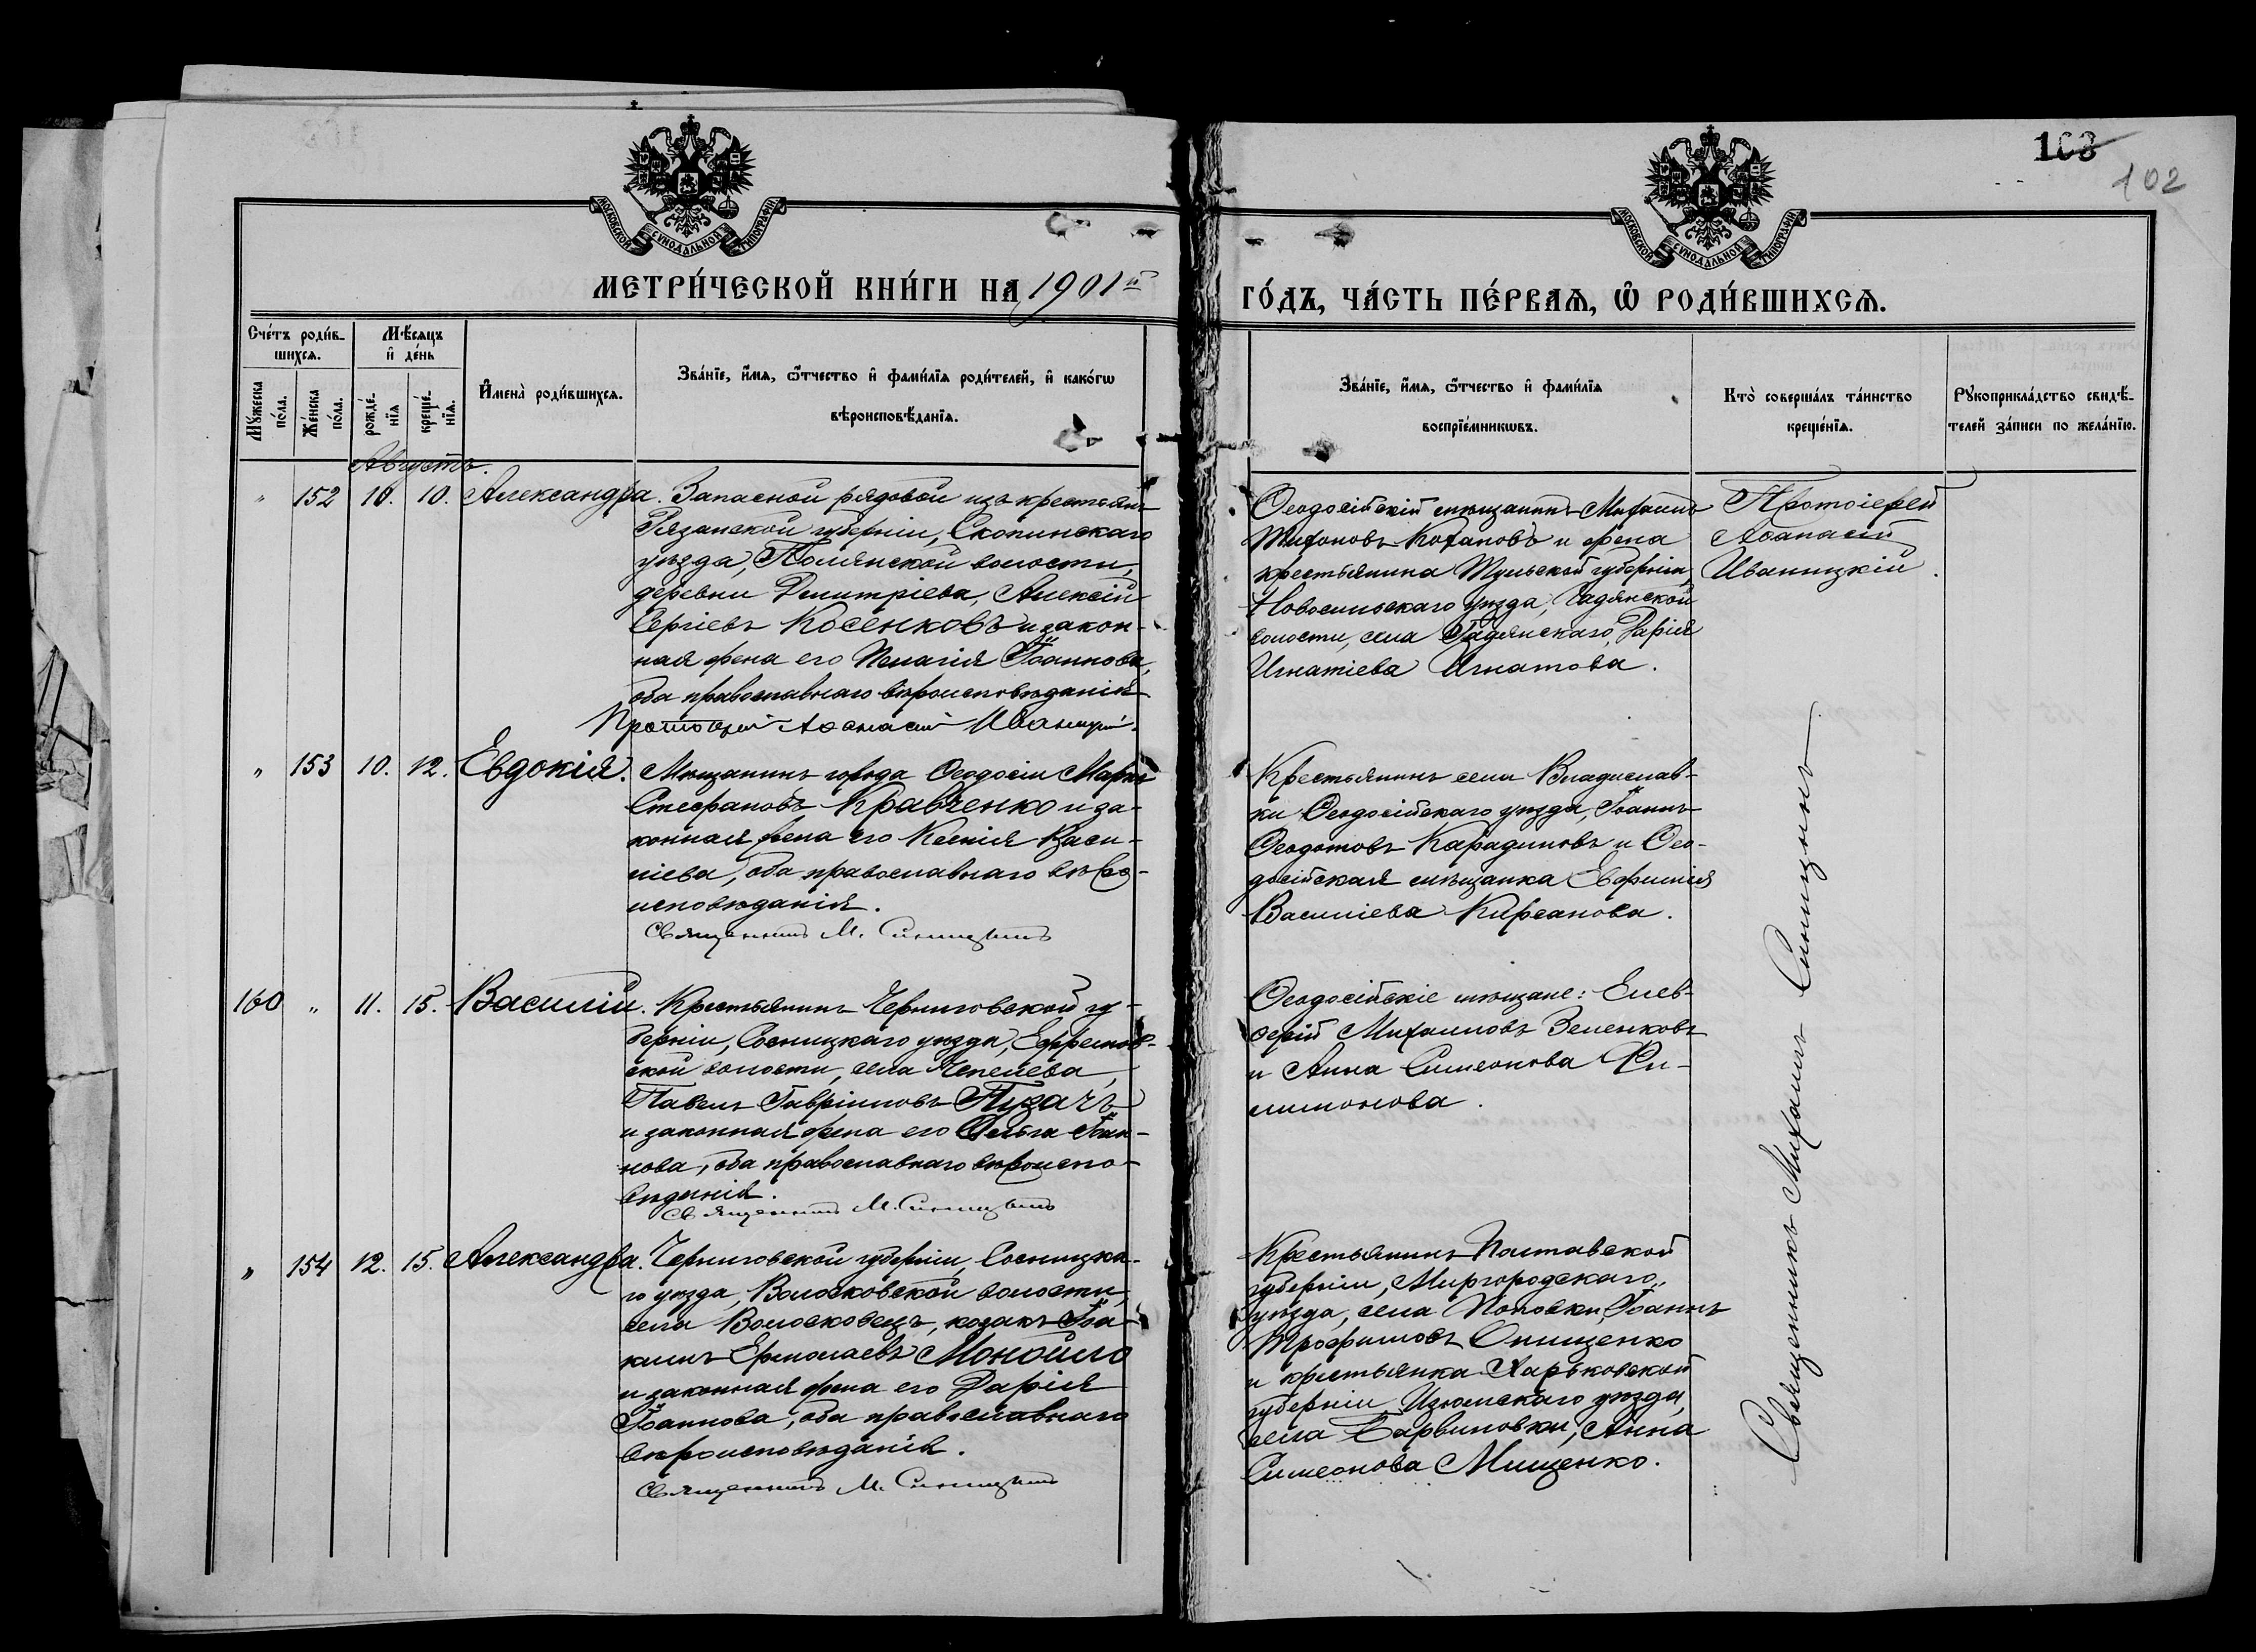 103
102
МОСКОВСКОЙ СѴНОДАЛЬНОЙ ТИПОГРАФІИ
МОСКОВСКОЙ СѴНОДАЛЬНОЙ ТИПОГРАФІИ
МЕТРИ́ЧЕСКОЙ КНИ́ГИ НА 1901й
ГО́ДЪ, ЧА́СТЬ ПЕ́РВАѦ, Ѡ҆ РОДИ́ВШИХСѦ.
Сче́тъ роди́в-
шихсѧ.
Мꙋ́жеска
по́ла.
Же́нска
по́ла.
Мѣ́сѧцъ
и҆ де́нь
рожде́-
нїѧ
креще́-
нїѧ.
И҆мена̀ роди́вшихсѧ.
Зва́нїе, и҆́мѧ, ѻ҆́тчество и҆ фами́лїѧ роди́телей, и҆ како́гѡ
вѣроисповѣ́данїѧ.
Зва́нїе, и҆́мѧ, ѻ҆́тчество и҆ фами́лїѧ
воспрїе́мникѡвъ.
Кто̀ соверша́лъ та́инство
креще́нїѧ.
Рꙋкоприкла́дство свидѣ́-
телей за́писи по жела́нїю.
Августъ.
" 152 10. 10. Александра. Запасной рядовой изъ крестьянъ
Рязанской губерніи, Скопинскаго
уѣзда, Полянской волости,
деревни Димитріева, Алексій
Сергіевъ Косенковъ и закон-
ная жена его Пелагія Іоаннова,
оба православнаго вѣроисповѣданія
Протоіерей Аѳанасій Иваницкій.
Ѳеодосійскій мѣщанинъ Михаилъ
Тихоновъ Кохановъ и жена
крестьянина Тульской губерніи,
Новосильскаго уѣзда, Гадянской
волости, села Гадянскаго, Дарія
Игнатіева Игнатова.
Протоіерей
Аѳанасій
Иваницкій.
" 153 10. 12. Евдокія. Мѣщанинъ города Ѳеодосіи Маркъ
Стефановъ Кравченко и за-
конная жена его Ксенія Васи-
ліева, оба православнаго вѣро-
исповѣданія.
Священникъ М. Синицынъ
Крестьянинъ села Владислав-
ки Ѳеодосійскаго уѣзда, Іоаннъ
Ѳеодотовъ Карадиновъ и Ѳео-
досійская мѣщанка Евфимія
Василіева Кирсанова.
160 " 11. 15. Василій. Крестьянинъ Черниговской гу-
берніи, Сосницкаго уѣзда,
ской волости, села
Павелъ Гавріиловъ Пузачъ
и законная жена его Ольга Іоан-
нова, оба православнаго вѣроиспо-
вѣданія.
Священникъ М. Синицынъ
Ѳеодосійскіе мѣщане: Елев-
ѳерій Михаиловъ Зеленковъ
и Анна Симеонова Фи-
лимонова.
" 154 12. 15. Александра. Черниговской губерніи, Сосницка-
го уѣзда, Волосковской волости,
села Волосковецъ, козакъ Іоа-
кимъ Ермолаевъ Мокойло
и законная жена его Дарія
Іоаннова, оба православнаго
вѣроисповѣданія.
Священникъ М. Синицынъ
Крестьянинъ Полтавской
губерніи, Миргородскаго
уѣзда, села Поповки, Іоаннъ
Трофимовъ Онищенко
и крестьянка Харьковской
губерніи Изюмскаго уѣзда,
села Барвиновки, Анна
Симеонова Мищенко.
Священникъ Михаилъ Синицынъ